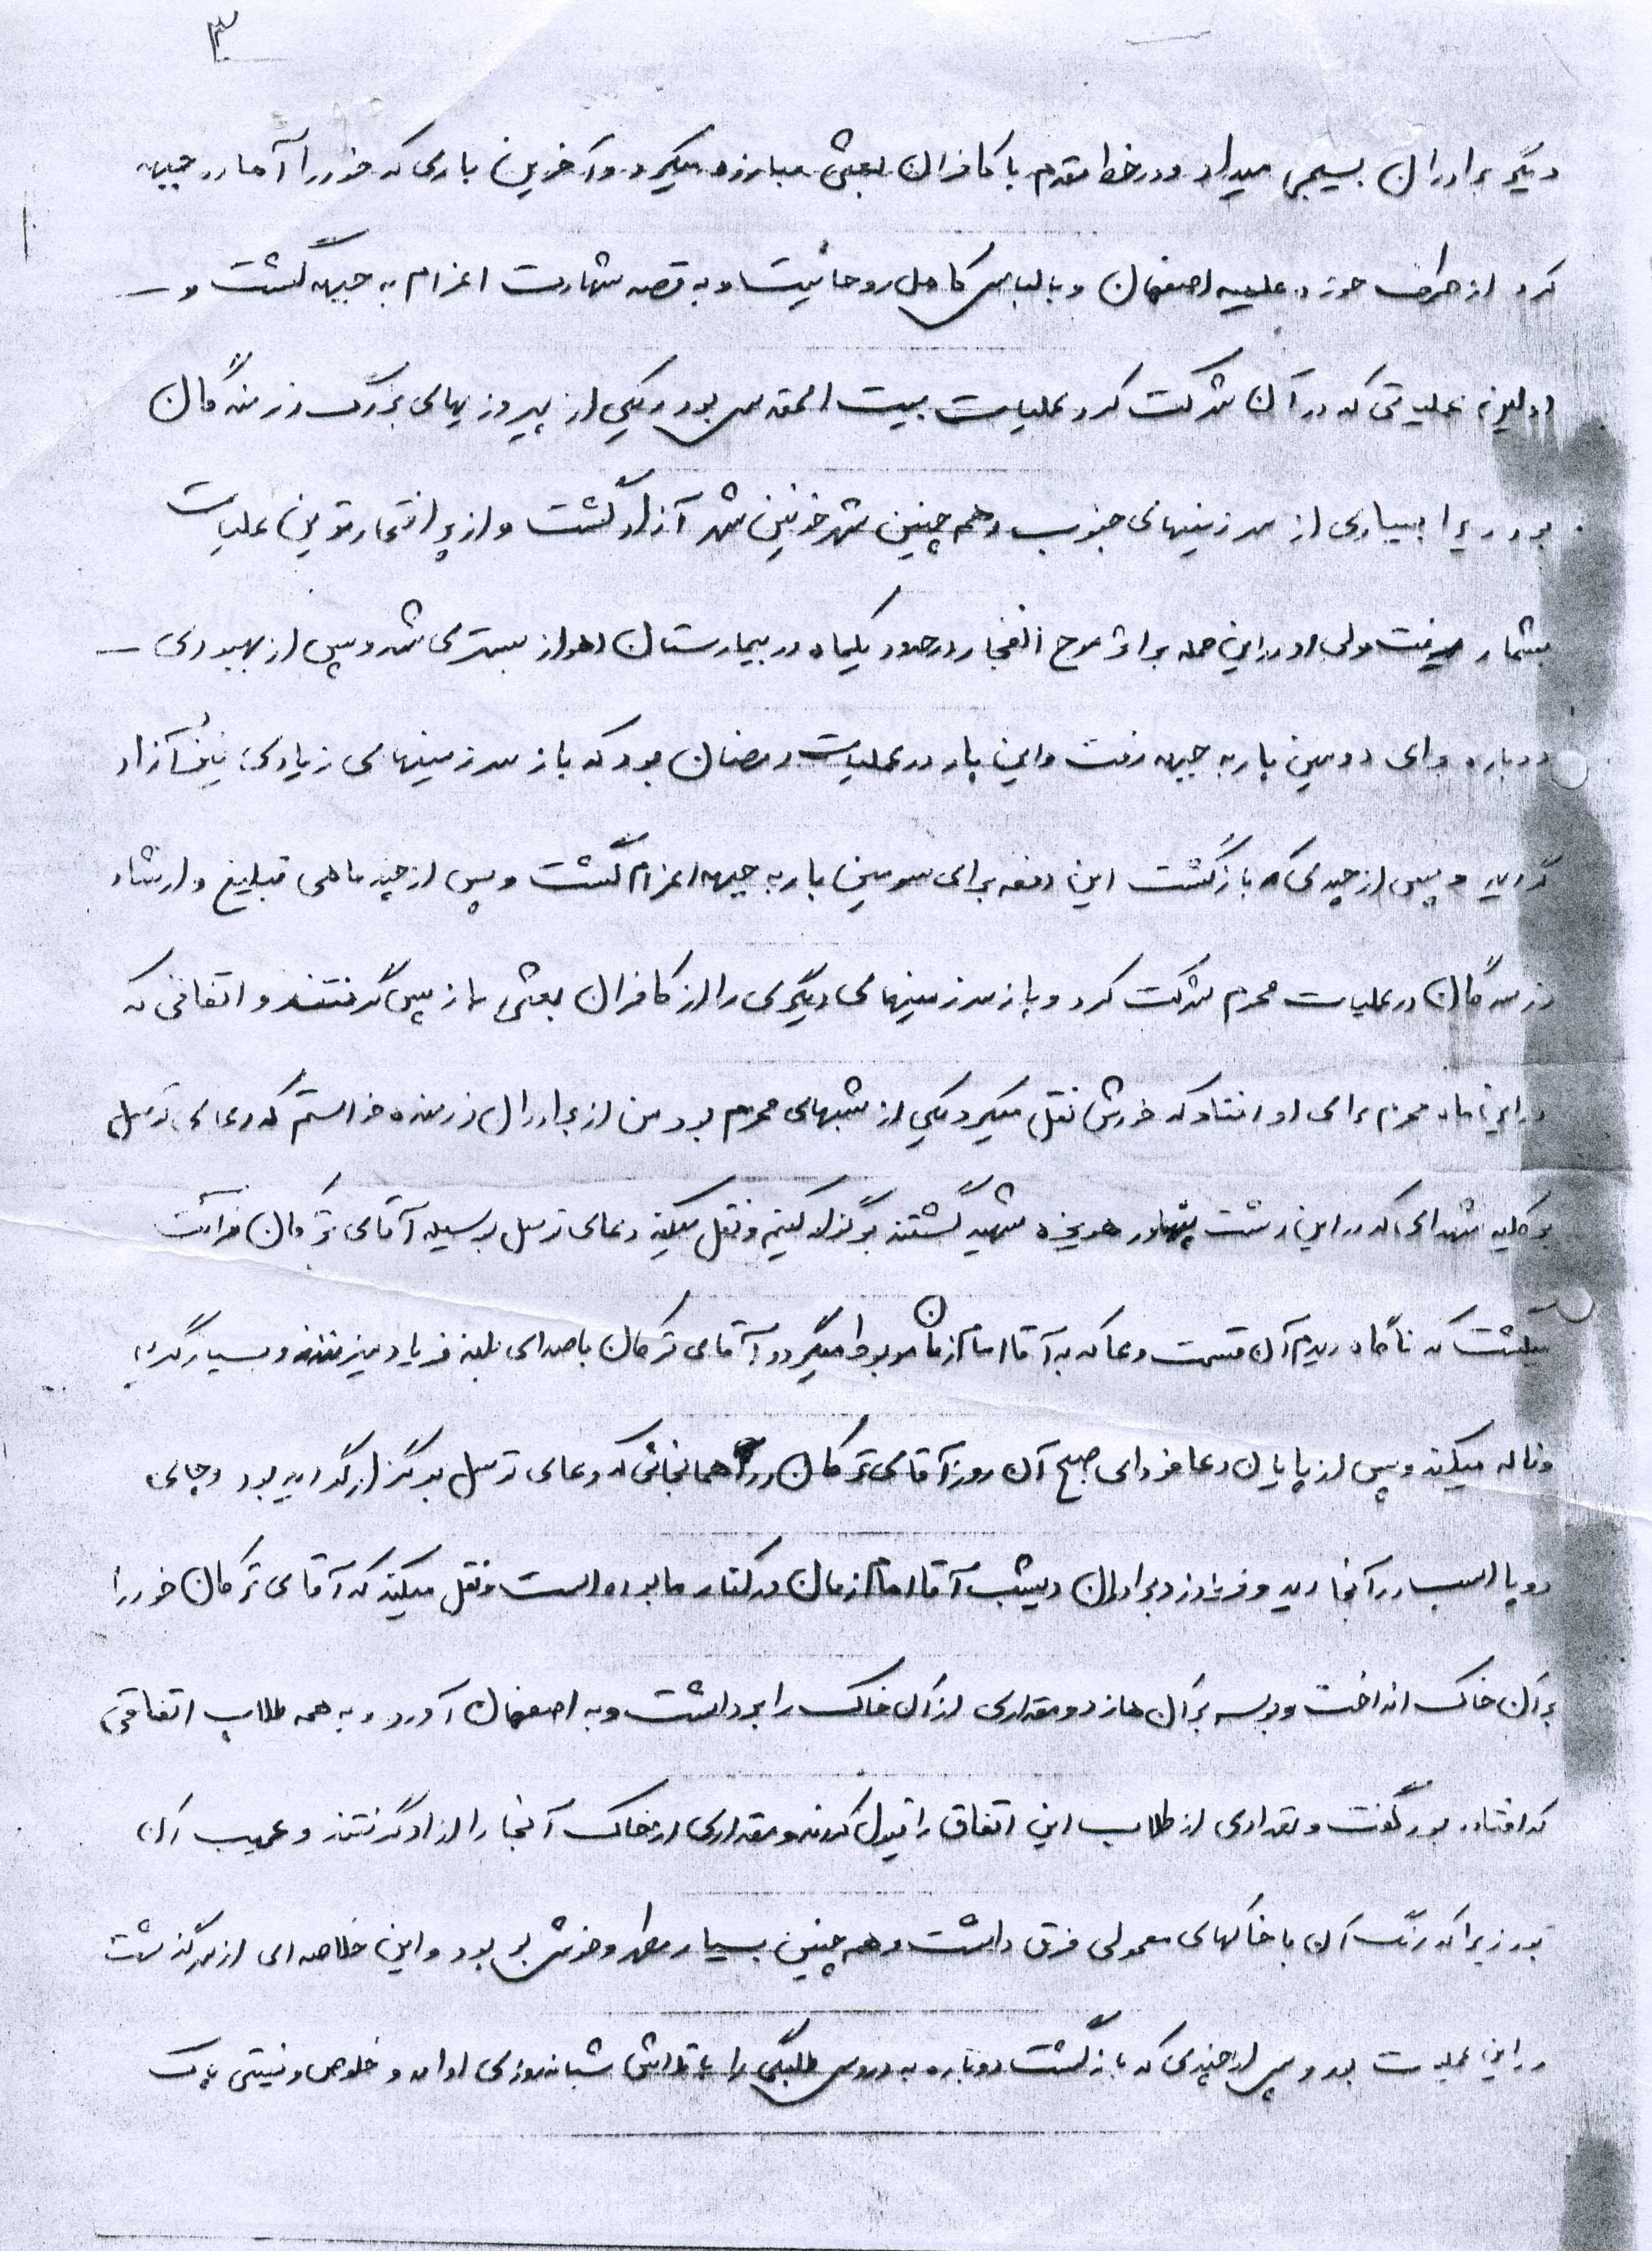 ۳
دیگر برادران بسیجی میداد و در خط مقدم با کافران بعثی مبارزه میکرد و آخرین باری که خود را آماده جبهه
کرد از طرف حوزه علمیه اصفهان و با لباس کامل روحانیت و به قصد شهادت اعزام به جبهه گشت و
اولین عملیاتی که در آن شرکت کرد عملیات بیت المقدس بود و یکی از پیروزیهای بزرگ رزمندگان
بود زیرا بسیاری از سرزمینهای جنوب و هم چنین شهر خونین شهر آزاد گشت و از پر افتخارترین عملیات
بشمار میرفت ولی او در این حمله بر اثر موج انفجار در حدود یکماه در بیمارستان اهواز بستری شد و پس از بهبودی
دوباره برای دومین بار به جبهه رفت و این بار در عملیات رمضان بود که باز سرزمینهای زیادی نیز آزاد
گردید و پس از چندی که بازگشت این دفعه برای سومین بار به جبهه اعزام گشت و پس از چند ماهی تبلیغ و ارشاد
رزمندگان در عملیات محرم شرکت کرد و باز سرزمینهای دیگری را از کافران بعثی باز پس گرفتند و اتفاقی که
در این ماه محرم برای او افتاد که خودش نقل میکرد یکی از شبهای محرم بود من از برادران رزمنده خواستم که دعای توسل
بر کلیه شهدای که در این دشت پهناور هویزه شهید گشتند برگزار کنیم و نقل میکند دعای توسل بوسیله آقای ترکان قرائت
میگشت که ناگاه دیدم آن قسمت دعا که به آقا امام زمان مربوط میگردد آقای ترکان با صدای بلند فریاد میزند و بسیار گریه
و ناله میکند و پس از پایان دعا فردای صبح آن روز آقای ترکان در همانجائی که دعای توسل برگزار گردیده بود و جای
دو پا اسب در آنجا دید و فریاد زد برادران دیشب آقا امام زمان در کنار ما بوده است و نقل میکند که آقای ترکان خود را
بر آن خاک انداخت و بوسه بر آن ها زد و مقداری از آن خاک را برداشت و به اصفهان آورد و به همه طلاب اتفاقی
که افتاده بود گفت و تعدادی از طلاب این اتفاق را قبول کردند و مقداری از خاک آنجا را از او گرفتند و عجیب آن
بود زیرا که رنگ آن با خاکهای معمولی فرق داشت و هم چنین بسیار معطر و خوش بو بود و این خلاصه ای از سرگذشت
در این عملیات بود و پس از چندی که بازگشت دوباره به دروس طلبگی را با تلاش شبانه روزی ادامه و خلوص و نیتی پاک